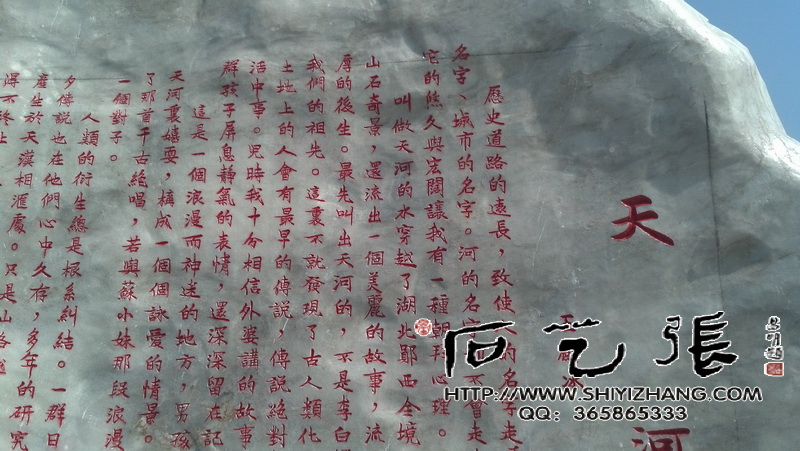 天河
歷史道路的遠長，致使
的名字走
名字、城市的名字。河的名字
會走
它的悠久與宏闊讓我有一種朝拜心理。
叫做天河的水穿越了湖北鄖西全境
山石奇景，還流出一個美麗的故事，流
厚的後生。最先叫出天河的，不是李白
我們的祖先。這裏不就發現了古人類化
土地上的人會有最早的傳說
傳說絕對
活中事。兒時我十分相信外婆講的故事
群孩子屏息靜氣的表情，還深深留在記
這是一個浪漫而神迷的地方，男孩
天河裏嬉耍，構成一個個詠愛的情景。
了那首千古絕唱，若與蘇小妹那段浪漫
一個對子。
人類的衍生總是根系糾結。一群日
夕傳說也在他們心中久存，多年的研究
產生於天漢相滙處。只是山
得不終止
石艺張
HTTP://WWW.SHIYIZHANG.COM
QQ：365865333